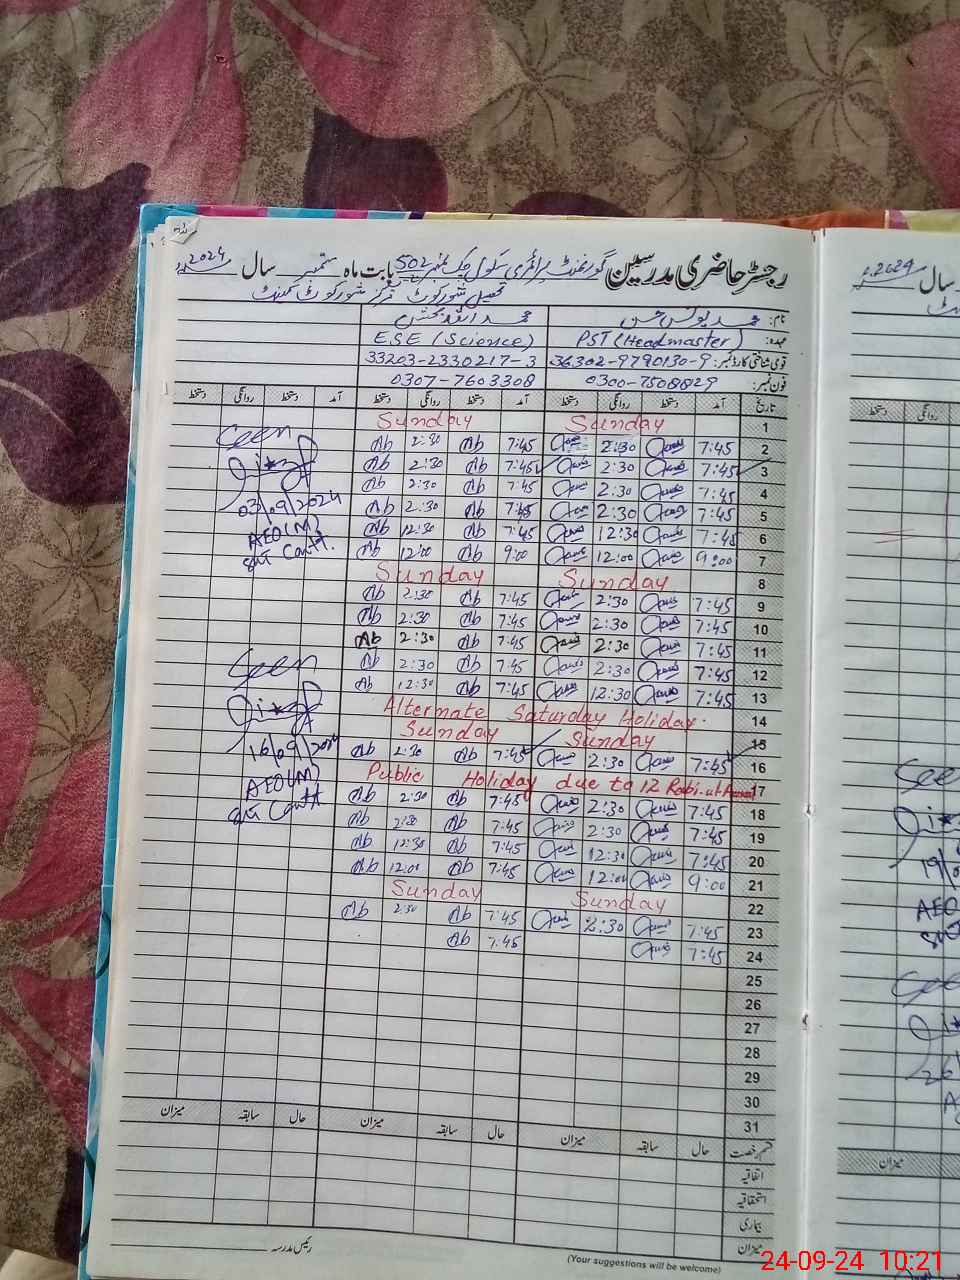 رجسٹر حاضری مدرسین گورنمنٹ پرائمری سکول چک نمبر 502 بابت ماہ ستمبر سال 2024ء
تحصیل شورکوٹ مرکز شورکوٹ کینٹ
نام: محمد یونس حسن محمد
عہدہ: PST (Headmaster) E.S.E (Science)
قومی شناختی کارڈ نمبر: 36302-9790130-9 33203-2330217-3
فون نمبر: 0300-7508829 0307-7603308
تاریخ آمد دستخط روانگی دستخط آمد دستخط روانگی دستخط آمد دستخط روانگی دستخط
1 Sunday Sunday
2 7:45 2:30 7:45 Ab 2:30 Ab
3 7:45 2:30 7:45 Ab 2:30 Ab
4 7:45 2:30 7:45 Ab 2:30 Ab
5 7:45 2:30 7:45 Ab 2:30 Ab
6 7:45 12:30 7:45 Ab 12:30 Ab
7 9:00 12:00 9:00 Ab 12:00 Ab
Seen
03/09/2024
AEO(M)
Cantt.
8 Sunday Sunday
9 7:45 2:30 7:45 Ab 2:30 Ab
10 7:45 2:30 7:45 Ab 2:30 Ab
11 7:45 2:30 7:45 Ab 2:30 Ab
12 7:45 2:30 7:45 Ab 2:30 Ab
13 7:45 12:30 7:45 Ab 12:30 Ab
14 Alternate Saturday Holiday.
15 Sunday Sunday
16 7:45 2:30 7:45 Ab 2:30 Ab
17 Public Holiday due to 12 Rabi-ul-Awwal
Seen
16/09/2024
AEO(M)
Cantt
18 7:45 2:30 7:45 Ab 2:30 Ab
19 7:45 2:30 7:45 Ab 2:30 Ab
20 7:45 12:30 7:45 Ab 12:30 Ab
21 9:00 12:00 7:45 Ab 12:00 Ab
22 Sunday Sunday
23 7:45 2:30 7:45 Ab 2:30 Ab
24 7:45 7:45 Ab
25
26
27
28
29
30
31
قسم رخصت حال سابقہ میزان حال سابقہ میزان حال سابقہ میزان
اتفاقیہ
استحقاقیہ
بیماری
میزان
رئیس مدرسہ
(Your suggestions will be welcome)
سال 2024ء
دستخط روانگی
AEO
میزان
24-09-24 10:21